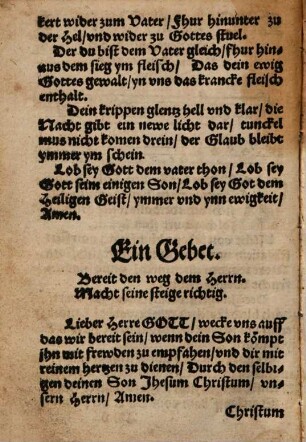 kert wider zum Vater/ Fhur hinunter zu
der Hel/ vnd wider zu Gottes stuel.
Der du bist dem Vater gleich/ fhur hin-
aus dem sieg ym fleisch/ Das dein ewig
Gottes gewalt/ yn vns das krancke fleisch
enthalt.
Dein krippen glentz hell vnd klar/ die
Nacht gibt ein newe licht dar/ tunckel
mus nicht komen drein/ der Glaub bleibt
ymmer ym schein.
Lob sey Gott dem vater thon/ Lob sey
Gott seim einigen Son/ Lob sey Got dem
Heiligen Geist/ ymmer vnd ynn ewigkeit/
Amen.
Ein Gebet.
Bereit den weg dem Herrn.
Macht seine steige richtig.
Lieber Herre GOTT/ wecke vns auff
das wir bereit sein/ wenn dein Son kömpt
jhn mit frewden zu empfahen/ vnd dir mit
reinem hertzen zu dienen/ Durch den selbi-
gen deinen Son Jhesum Christum/ vn-
sern Herrn/ Amen.
Christum